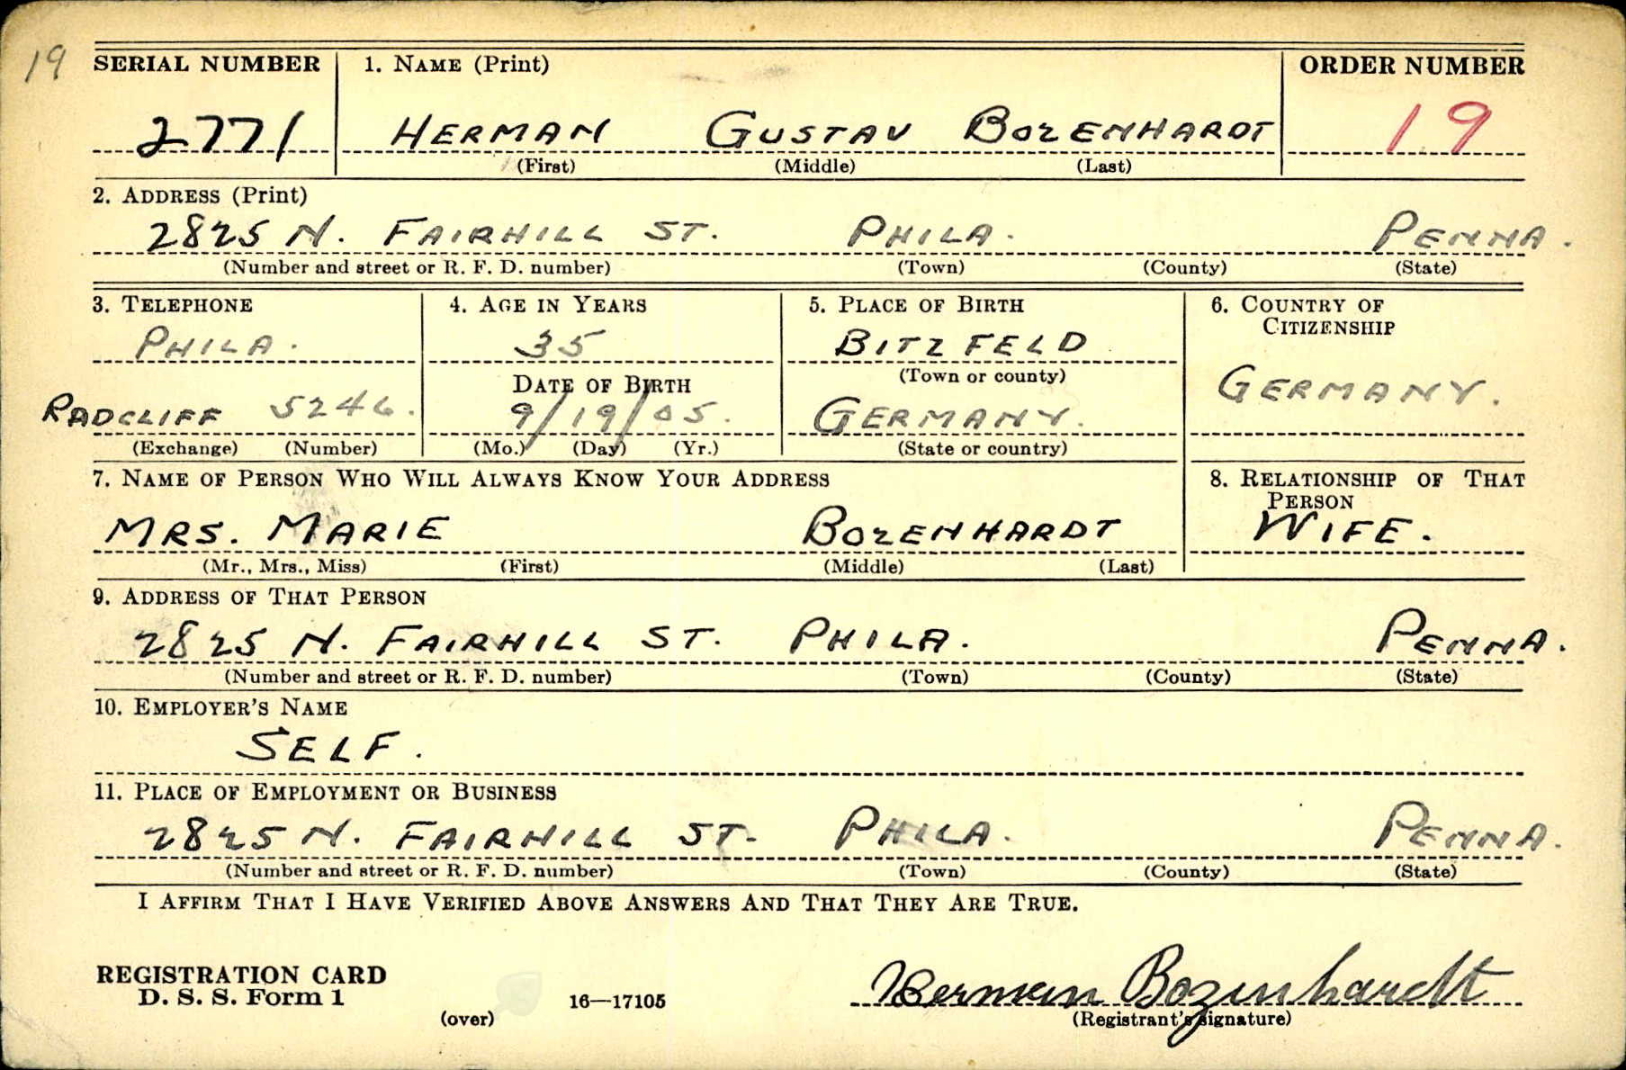 19
SERIAL NUMBER 1. NAME (Print) ORDER NUMBER
2771 HERMAN GUSTAV BOZENHARDT 19
(First) (Middle) (Last)
2. ADDRESS (Print)
2825 N. FAIRHILL ST. PHILA. PENNA.
(Number and street or R. F. D. number) (Town) (County) (State)
3. TELEPHONE 4. AGE IN YEARS 5. PLACE OF BIRTH 6. COUNTRY OF CITIZENSHIP
PHILA. 35 BITZFELD
DATE OF BIRTH (Town or county) GERMANY.
RADCLIFF 5246. 9/19/05. GERMANY.
(Exchange) (Number) (Mo.) (Day) (Yr.) (State or country)
7. NAME OF PERSON WHO WILL ALWAYS KNOW YOUR ADDRESS 8. RELATIONSHIP OF THAT PERSON
MRS. MARIE BOZENHARDT WIFE.
(Mr., Mrs., Miss) (First) (Middle) (Last)
9. ADDRESS OF THAT PERSON
2825 N. FAIRHILL ST. PHILA. PENNA.
(Number and street or R. F. D. number) (Town) (County) (State)
10. EMPLOYER'S NAME
SELF.
11. PLACE OF EMPLOYMENT OR BUSINESS
2825 N. FAIRHILL ST. PHILA. PENNA.
(Number and street or R. F. D. number) (Town) (County) (State)
I AFFIRM THAT I HAVE VERIFIED ABOVE ANSWERS AND THAT THEY ARE TRUE.
REGISTRATION CARD
D. S. S. Form 1 16—17105 Herman Bozenhardt
(over) (Registrant's signature)